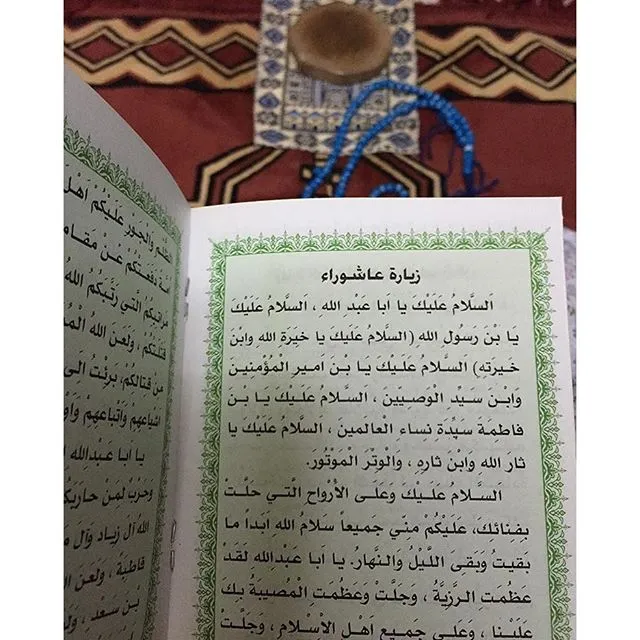 زيارة عاشوراء
اَلسَّلامُ عَلَيْكَ يا اَبا عَبْدِ الله ، اَلسَّلامُ عَلَيْكَ
يا بْنَ رَسُول الله (السَّلامُ عَلَيْكَ يا خَيَرَةَ الله وابْنَ
خيرتِهِ) اَلسَّلامُ عَلَيْكَ يا بْنَ اَميرِ المُؤْمِنين
وابْنَ سَيِّد الْوصِيين ، السَّلام عليْكَ يا بْن
فاطِمَةَ سَيِّدة نساءِ العالَمين ، السَّلام عَلَيْكَ يا
ثار الله وابْنَ ثارِه ، والْوِتْر الْمَوْتُورَ.
اَلسَّلامُ عَلَيْكَ وَعَلَى الأَرْواحِ الَّتي حَلَّتْ
بِفِنائك، عَلَيْكُمْ مِنّي جَميعاً سَلامُ اللهِ اَبداً ما
بَقيتُ وَبَقىَ اللَّيْلُ والنَّهارُ. يا اَبا عَبْدالله لَقَدْ
عَظُمَتِ الرَّزِيَّةُ ، وَجَلَّتْ وعظُمَتِ الْمُصيبةُ بِكَ
عَلَيْنا ، وَعَلى جَميع اَهْلِ الاِسْلام ، وجَلَّتْ
الظُّلم والْجَوْرِ عَلَيْكُمْ اَهْلَ
دفَعَتْكُمْ عَنْ مَقامِ
مَراتِبِكُمُ الَّتي رَتَّبَكُمُ اللهُ
قَتَلَتْكُمْ ، وَلَعَنَ اللهُ
مِن قتالِكُمْ، بَرِئْتُ اِلى
اَشْياعِهِمْ وَاَتْباعِهِمْ
يا اَبا عَبْدِالله
وَحَرْبٌ لِمَنْ حارَبَكُمْ
اللهُ آل زِياد وَآلَ
، وَلَعَنَ
بْنَ سَعْد ، وَلَعَ